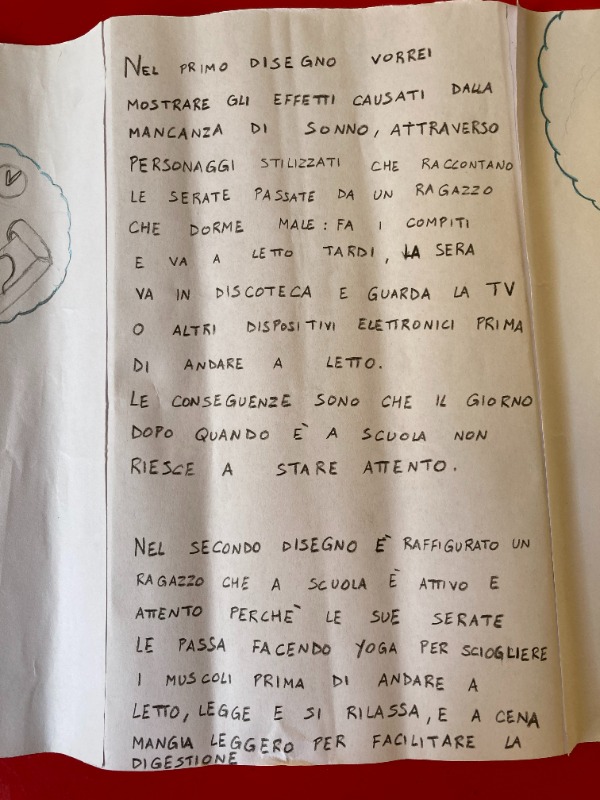 NEL PRIMO DISEGNO VORREI
MOSTRARE GLI EFFETTI CAUSATI DALLA
MANCANZA DI SONNO, ATTRAVERSO
PERSONAGGI STILIZZATI CHE RACCONTANO
LE SERATE PASSATE DA UN RAGAZZO
CHE DORME MALE: FA I COMPITI
E VA A LETTO TARDI, LA SERA
VA IN DISCOTECA E GUARDA LA TV
O ALTRI DISPOSITIVI ELETTRONICI PRIMA
DI ANDARE A LETTO.
LE CONSEGUENZE SONO CHE IL GIORNO
DOPO QUANDO È A SCUOLA NON
RIESCE A STARE ATTENTO.
NEL SECONDO DISEGNO È RAFFIGURATO UN
RAGAZZO CHE A SCUOLA È ATTIVO E
ATTENTO PERCHE` LE SUE SERATE
LE PASSA FACENDO YOGA PER SCIOGLIERE
I MUSCOLI PRIMA DI ANDARE A
LETTO, LEGGE E SI RILASSA, E A CENA
MANGIA LEGGERO PER FACILITARE LA
DIGESTIONE